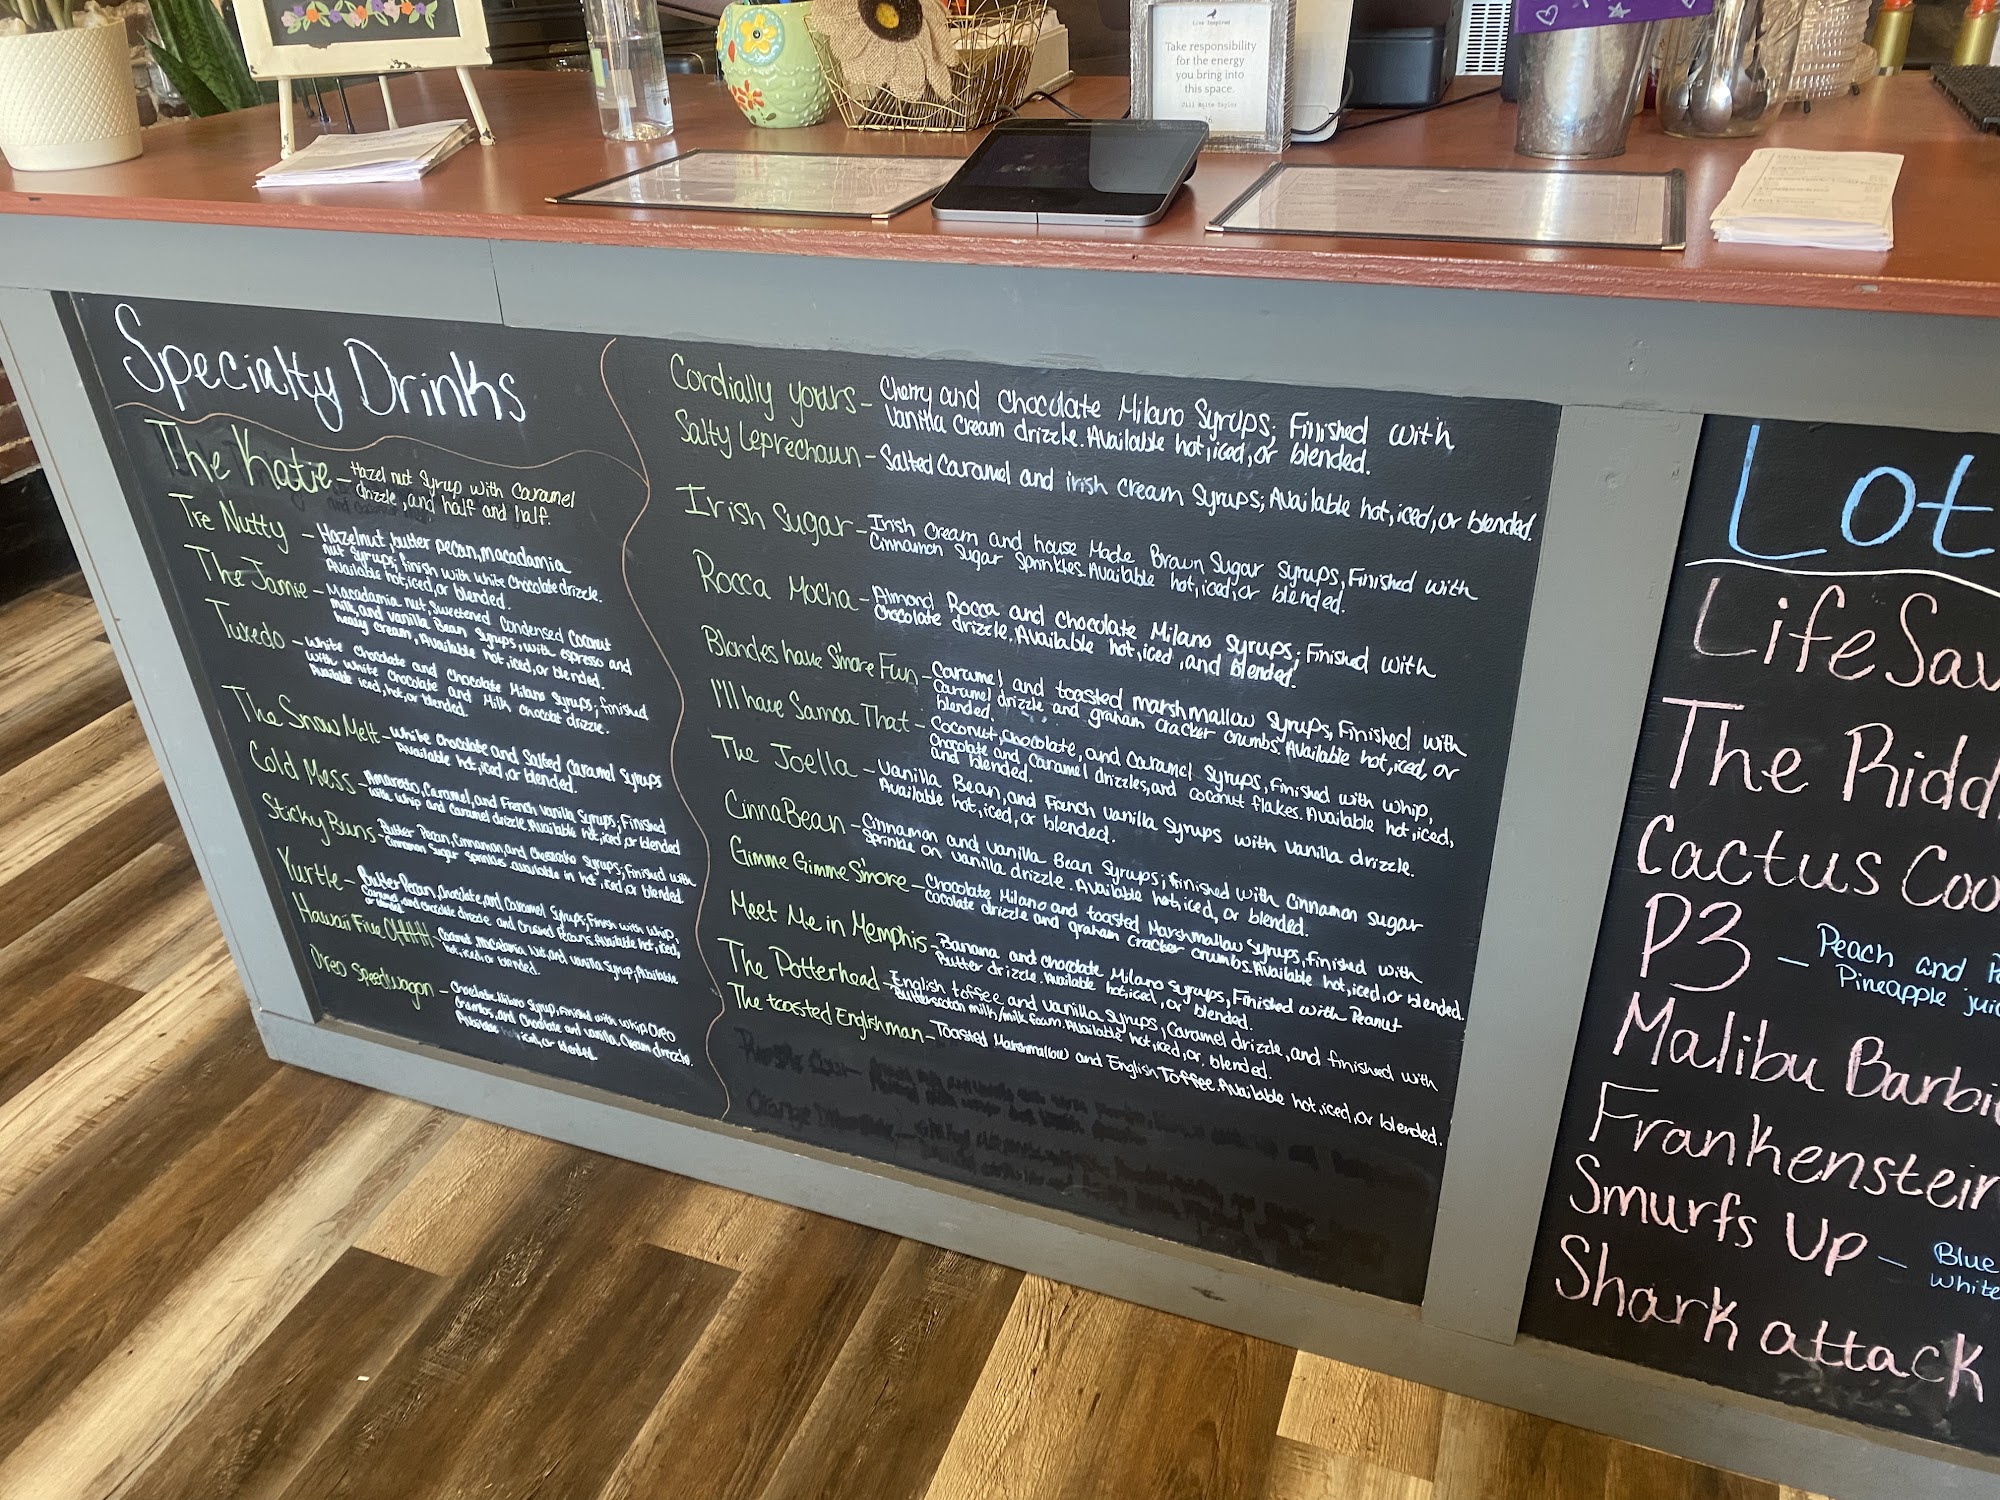 Live Inspired
Take responsibility
for the energy
you bring into
this space.
Specialty Drinks
The Katie - Hazel nut Syrup with Caramel
drizzle, and half and half.
Tre Nutty - Hazelnut, butter pecan, macadamia
nut syrups; finish with white chocolate drizzle.
Available hot, iced, or blended.
The Jamie - Macadamia nut, Sweetened Condensed Coconut
milk, and vanilla Bean Syrups, with espresso and
heavy cream, Available hot, iced, or blended.
Tuxedo - White chocolate and Chocolate Milano Syrups; finished
with white chocolate and Milk chocolat drizzle.
Available iced, hot, or blended.
The Snow Melt - White Chocolate and Salted Caramel Syrups
Available hot, iced, or blended.
Cold Mess - Amaretto, Caramel, and French Vanilla Syrups; Finished
with whip and caramel drizzle. Available hot, iced, or blended
Sticky Buns - Butter Pecan, Cinnamon, and Cheesecake Syrups; Finished with
Cinnamon Sugar Sprinkles. available in hot, iced, or blended.
Yurtle - Butter Pecan, chocolate, and Caramel Syrups; Finish with whip,
Caramel, and chocolate drizzle and crushed Pecans. Available hot, iced,
or blended.
Hawaii Five OHHHH - Coconut, Macadamia Nut, and vanilla Syrup; Available
hot, iced, or blended.
Oreo Speedwagon - Chocolate Milano Syrup, finished with whip, Oreo
Crumbles, and Chocolate and vanilla Cream drizzle.
Available iced, or blended.
Cordially yours - Cherry and Chocolate Milano Syrups; Finished with
Vanilla Cream drizzle. Available hot, iced, or blended.
Salty Leprechaun - Salted Caramel and irish cream Syrups; Available hot, iced, or blended.
Irish Sugar - Irish Cream and house Made Brown Sugar Syrups, Finished with
Cinnamon Sugar Sprinkles. Available hot, iced, or blended.
Rocca Mocha - Almond Rocca and Chocolate Milano Syrups; Finished with
Chocolate drizzle. Available hot, iced, and blended.
Blondes have S'more Fun - Caramel and toasted marshmallow Syrups, Finished with
Caramel drizzle and graham cracker crumbs. Available hot, iced, or
blended.
I'll have Samoa That - Coconut, chocolate, and Caramel Syrups, Finished with whip,
Chocolate and Caramel drizzles, and coconut flakes. Available hot, iced,
and blended.
The Joella - Vanilla Bean, and French Vanilla Syrups with vanilla drizzle.
Available hot, iced, or blended.
CinnaBean - Cinnamon and Vanilla Bean Syrups; finished with Cinnamon Sugar
Sprinkle on Vanilla drizzle. Available hot, iced, or blended.
Gimme Gimme S'more - Chocolate Milano and toasted Marshmallow Syrups, Finished with
cocolate drizzle and graham cracker crumbs. Available hot, iced, or blended.
Meet Me in Memphis - Banana and chocolate Milano Syrups, Finished with Peanut
Butter drizzle. Available hot, iced, or blended.
The Potterhead - English toffee and Vanilla Syrups, Caramel drizzle, and finished with
Butterscotch milk/milk foam. Available hot, iced, or blended.
The toasted Englishman - Toasted Marshmallow and English Toffee. Available hot, iced, or blended.
Lot
Life Sav
The Ridd
Cactus Coo
P3 - Peach and
Pineapple juic
Malibu Barbi
Frankenstein
Smurfs Up - Blue
White
Shark attack